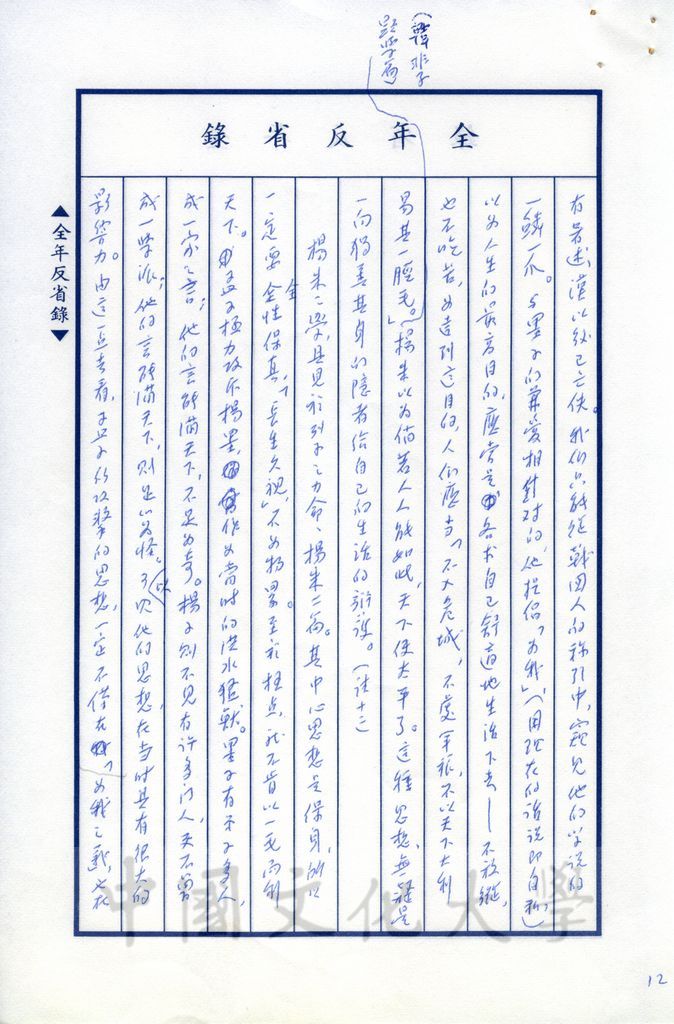 (韓非子
顯學篇)
全年反省錄
有著述，漢以後已亡佚。我們只能從戰國人的稱引中，窺見他的學說的
一鱗一爪。與墨子的兼愛相針對的，他提倡「為我」(用現在的話說即自私)
以為人生的最高目的，應當是各求自己舒適地生活下去——不放縱，
也不吃苦，為達到這目的，人們應當「不入危城，不處軍旅，不以天下大利
易其一脛毛。」楊朱以為倘若人人能如此，天下便太平了。這種思想，無疑是
一向獨善其身的隱者給自己的生活的辯護。(註十三)
楊朱之學，具見於列子之力命、楊朱二篇。其中心思想是保身，所以
一定要全性保真，「長生久視」，不為物累。至於極点，就不肯以一毛而利
全
天下。孟子極力攻斥楊墨，作為當時的洪水猛獸。墨子有弟子多人，
成一家之言；他的言論滿天下，不足為奇。楊子則不見有許多門人，又不曾
成一學派；他的言論滿天下，則足以為怪。可以
次他的思想，在當時具有很大的
影響力。由這一点去看，孟子所攻擊的思想，一定不僅在「為我之義，必在
▲全年反省錄▼
中國文化大學
12